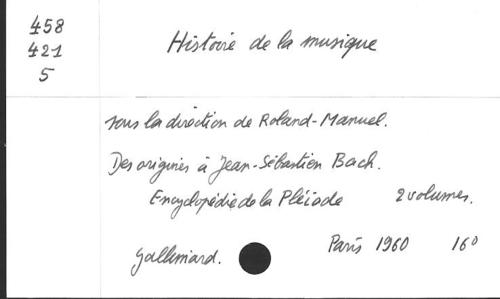 458
421
5
Histoire de la musique
sous la direction de Roland-Manuel.
Des origines à Jean-Sébastien Bach.
Encyclopédie de la Pléiade 2 volumes.
Paris 1960 16°
Gallimard.